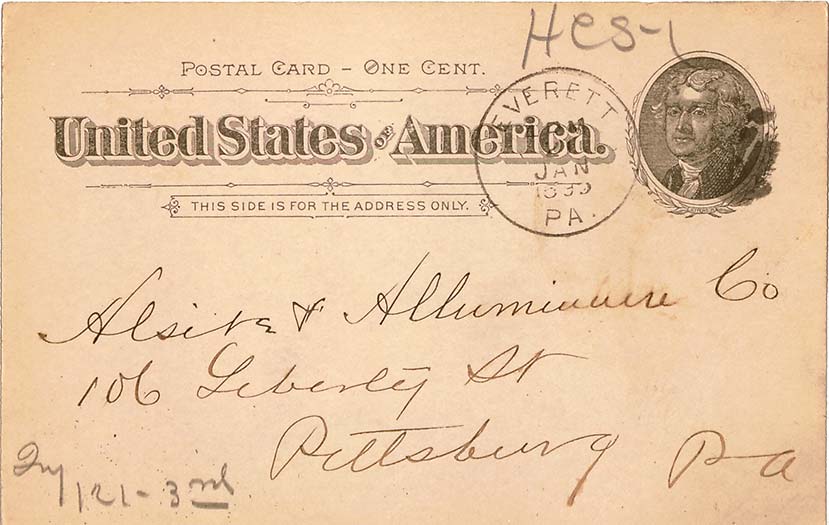 HCS-1
POSTAL CARD – ONE CENT.
United States of America.
THIS SIDE IS FOR THE ADDRESS ONLY.
EVERETT
JAN
PA.
Alsita & Alluminum Co
106 Liberty St
Pittsburg Pa
121-3rd